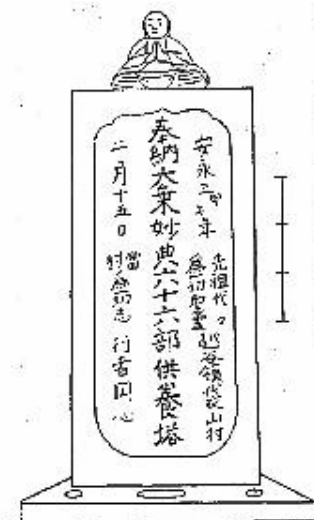 安永三甲午年
先祖代々
為初聖霊 越谷領袋山村
奉納大乗妙典六十六部供養塔
二月十五日
當村為初志 行者同心